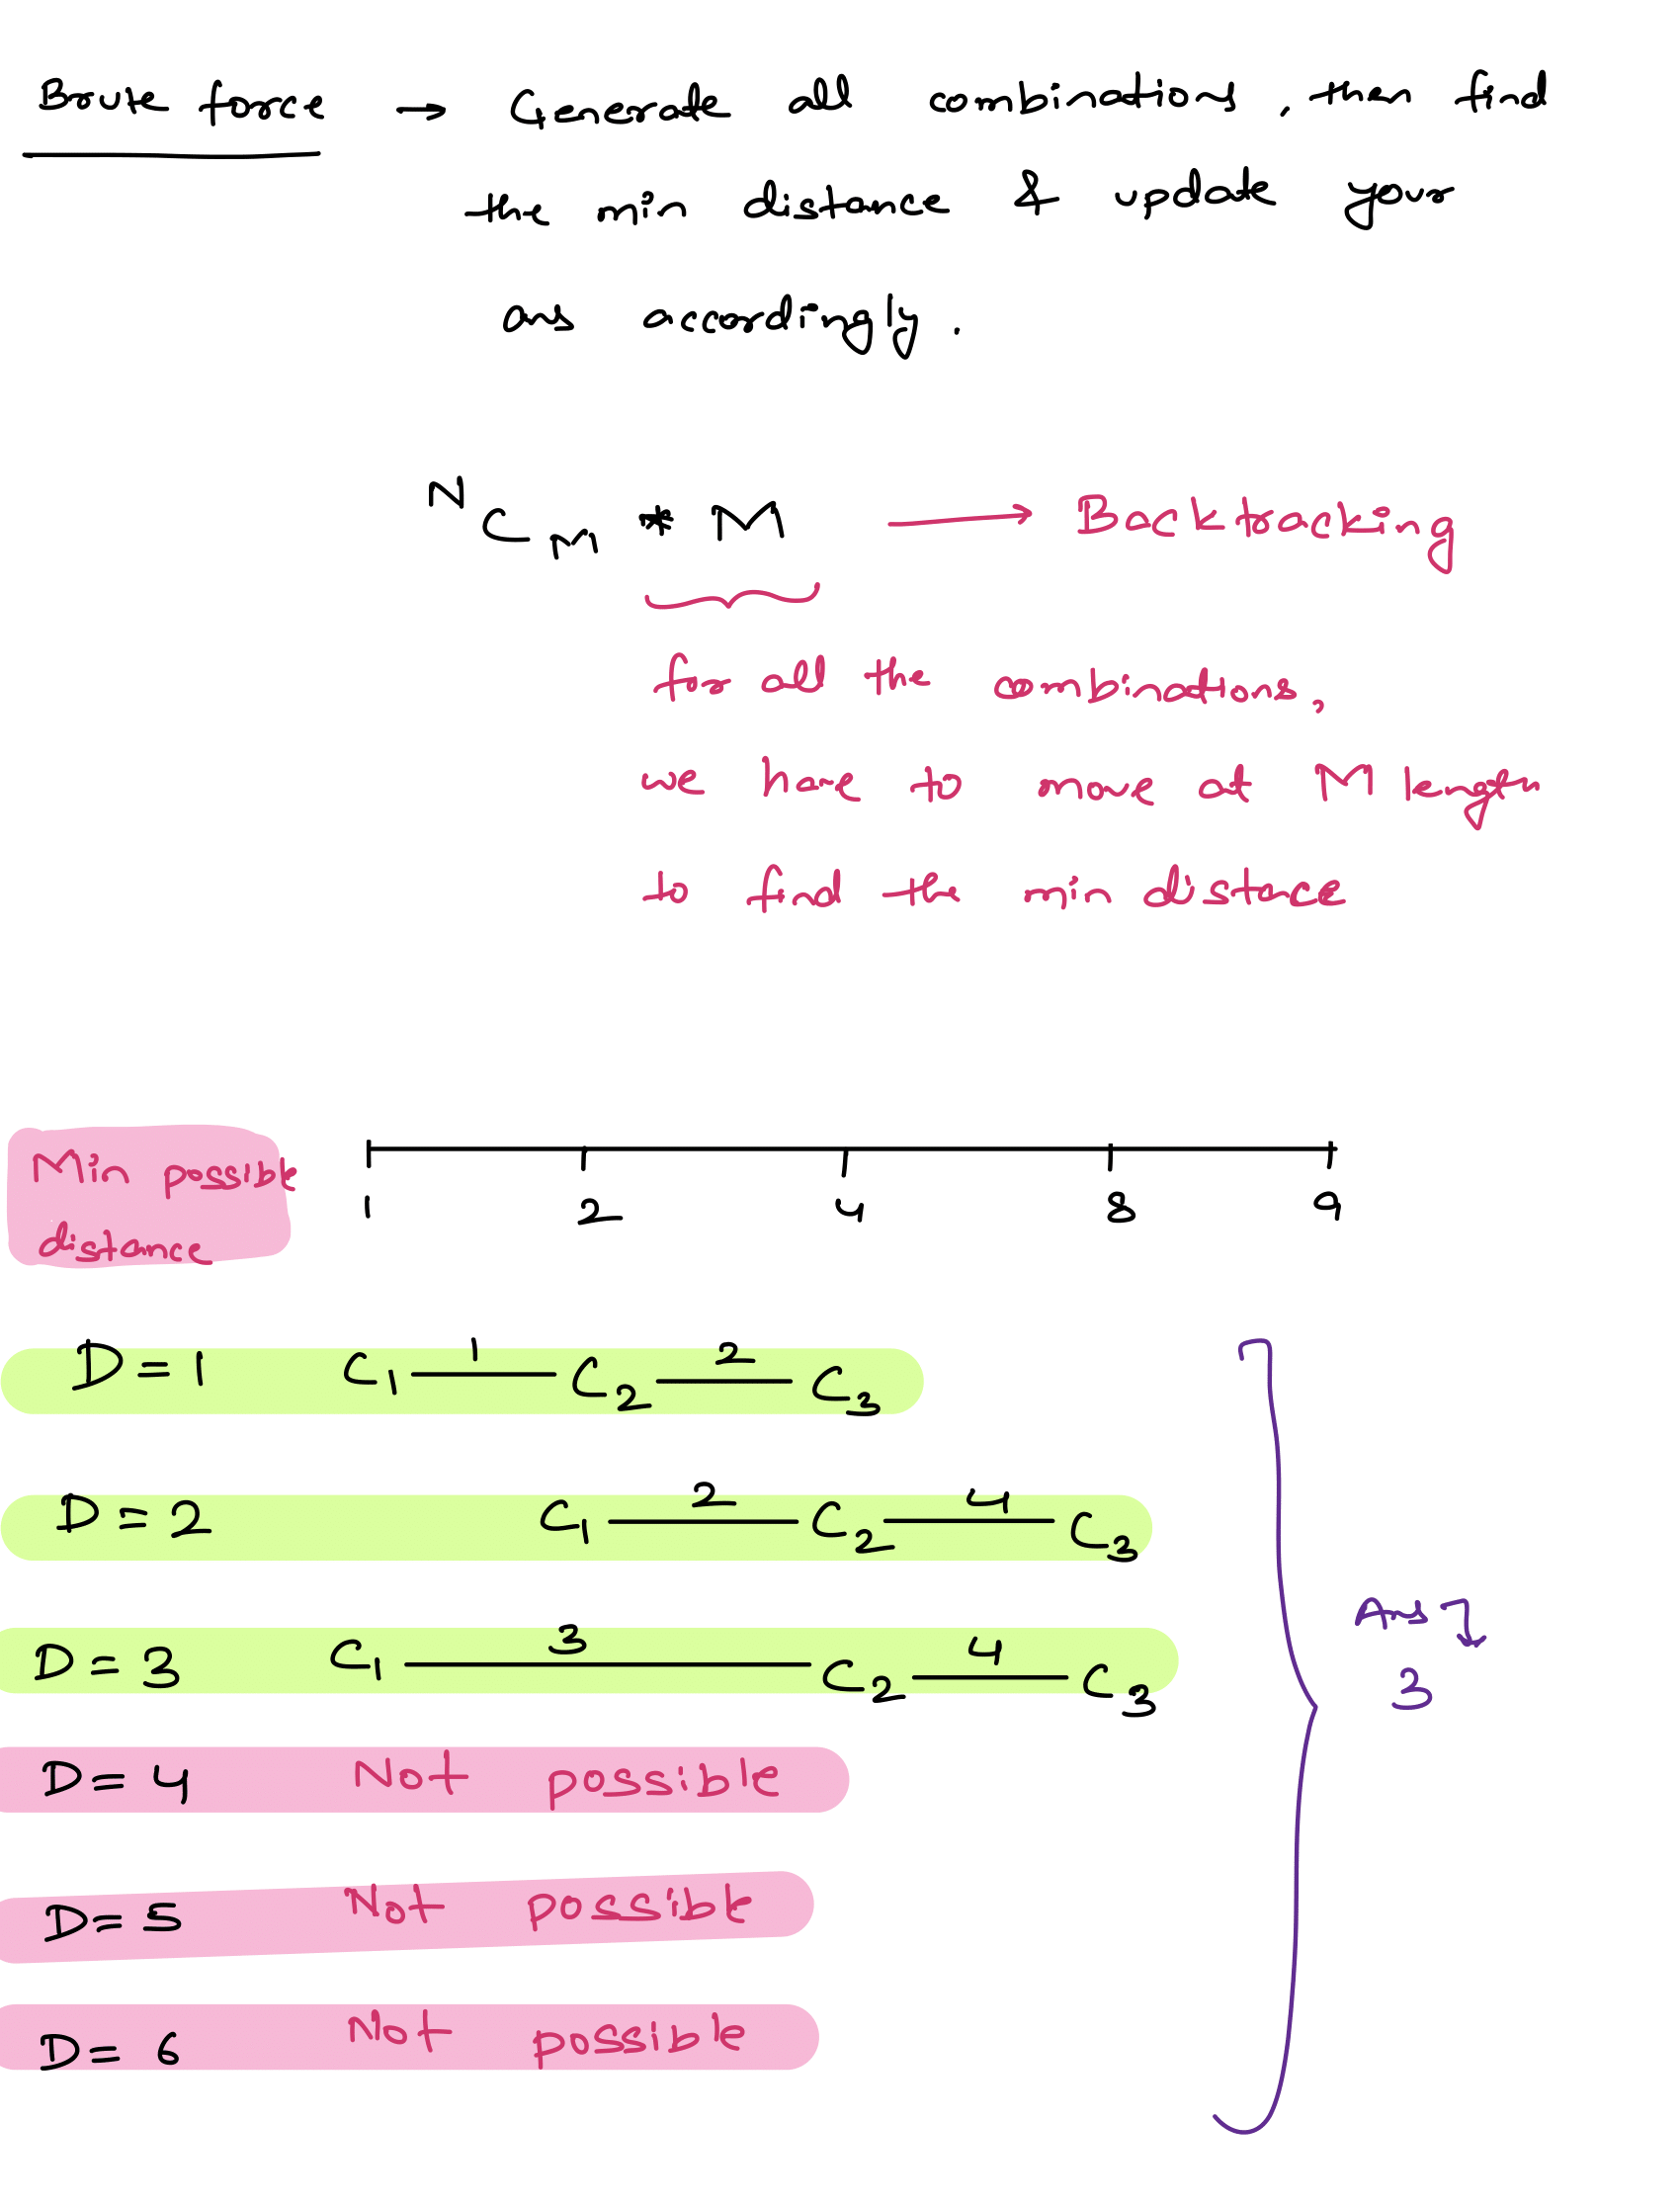 Brute force → Generate all combinations, then find
the min distance & update your
ans accordingly.
N C M * M → Backtracking
for all the combinations,
we have to move at M length
to find the min distance
Min possible
distance
1 2 4 8 9
D = 1 C1 1 C2 2 C3
D = 2 C1 2 C2 4 C3
D = 3 C1 3 C2 4 C3
Ans
3
D = 4 Not possible
D = 5 Not possible
D = 6 Not possible